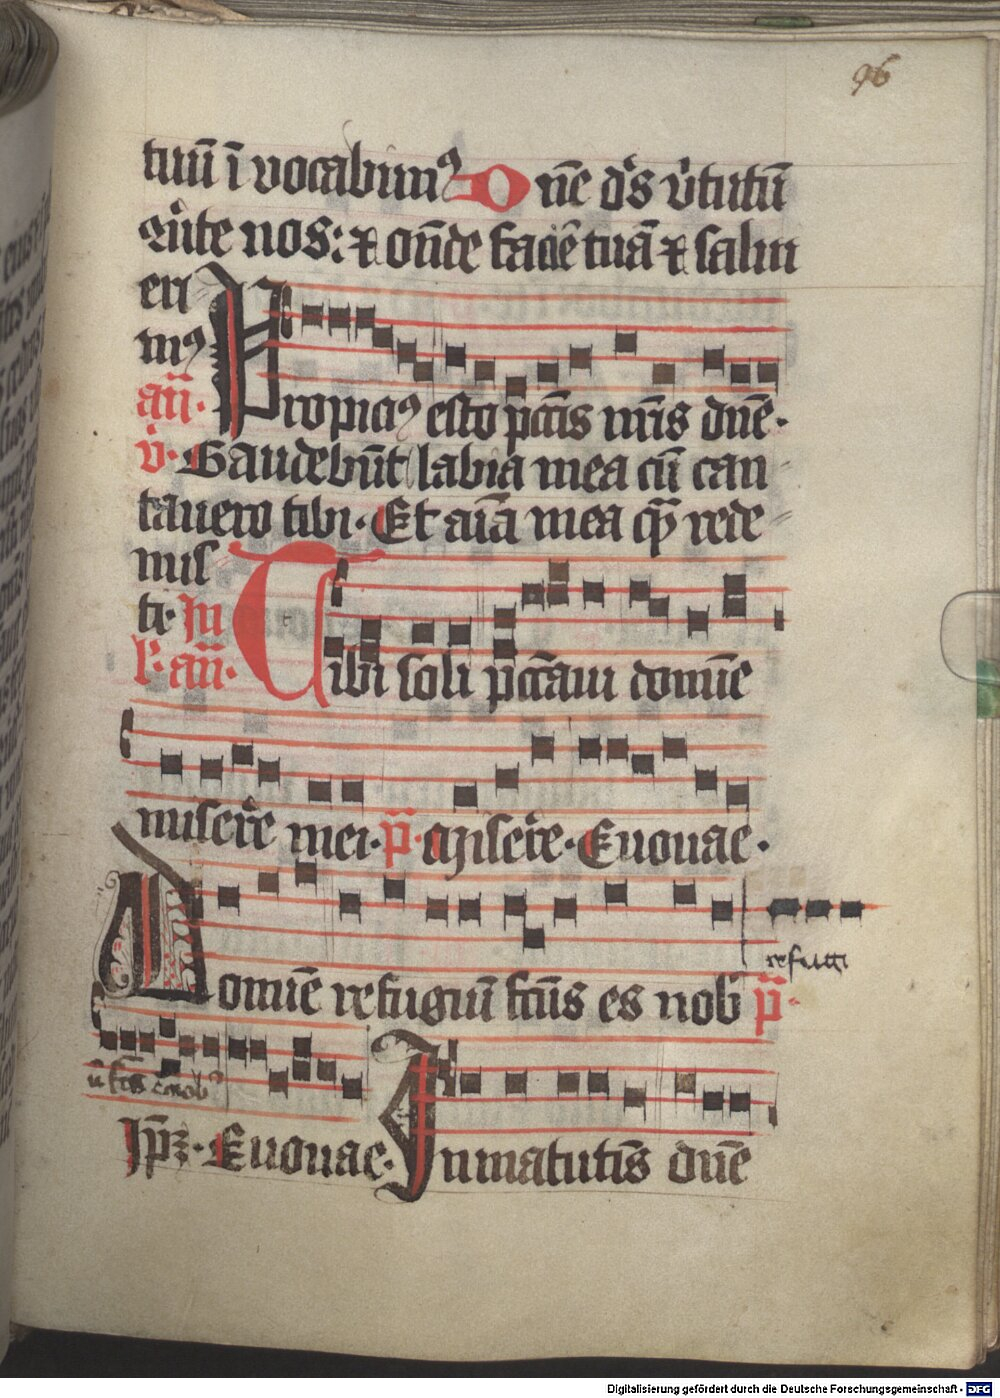 96
tuū ī vocabimꝰ Dne ds vtutū
ꝯute nos: ⁊ onde faciē tuā ⁊ salui
eri
mꝰ
an̄. Propiciꝰ esto pctīs nrīs dnē.
v̇. Gaudebūt labia mea cū can
tauero tibi. Et aīa mea qm̄ rede
mis
ti. In
l. an̄. Tibi soli pctāui domīe
miserē mei. p̄. Miserē. Euouae.
refugi
Domīe refugiū fcūs es nob p̄.
Ip̄ꝫ. Euouae. In matutīs dnē
Digitalisierung gefördert durch die Deutsche Forschungsgemeinschaft - DFG